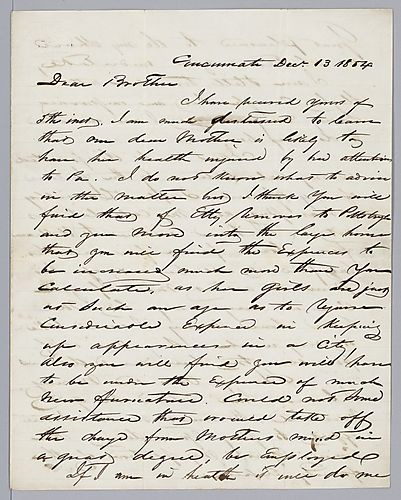 Cincinnati Decr. 13 1854
Dear Brother
I have received yours of
5th inst, I am much distressed to learn
that our dear Mother is likely to
have her health injured by her attention
to Pa. I do not know what to advise
in the matter but I think you will
find that if Etty removes to Pittsburgh
and you move into the large house
that you will find the Expences to
be increased much more than you
calculate, as her girls are just
at such an age as to require
Considerable Expence in keeping
up appearances in a City,
Also you will find you will have
to be under the Expence of much
New furniture. Could not some
assistance that would take off
the charge from Mothers mind in
a great degree, be employed
If I am in health I will do me